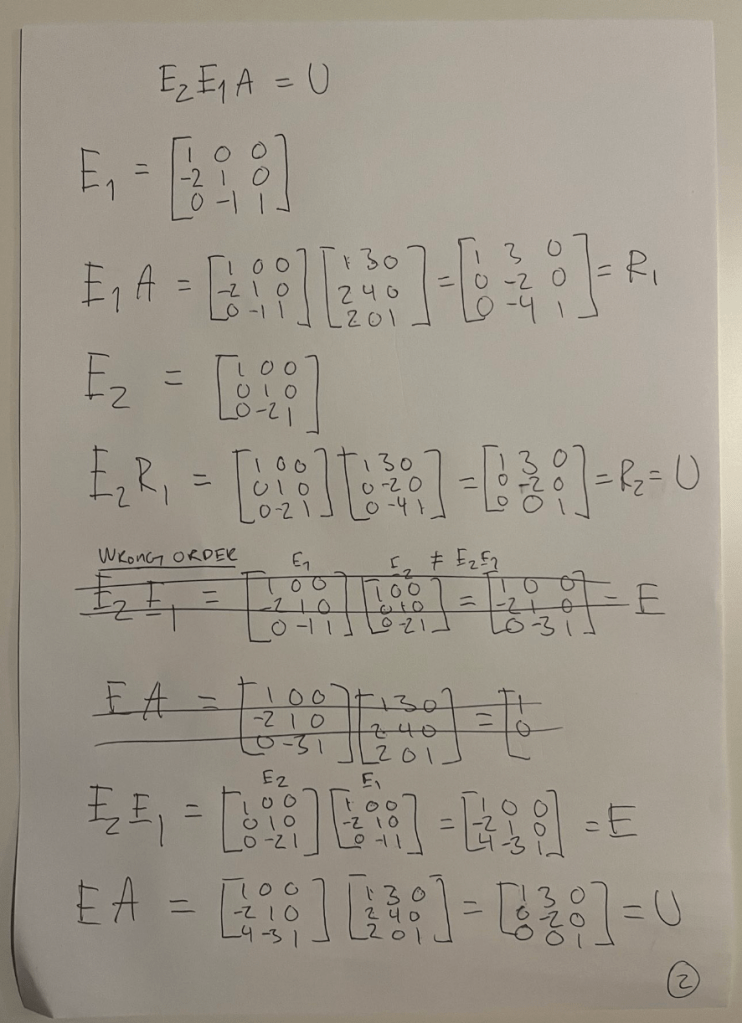 E₂E₁A = U
E₁ = [1 0 0; -2 1 0; 0 -1 1]
E₁A = [1 0 0; -2 1 0; 0 -1 1] [1 3 0; 2 4 0; 2 0 1] = [1 3 0; 0 -2 0; 0 -4 1] = R₁
E₂ = [1 0 0; 0 1 0; 0 -2 1]
E₂R₁ = [1 0 0; 0 1 0; 0 -2 1] [1 3 0; 0 -2 0; 0 -4 1] = [1 3 0; 0 -2 0; 0 0 1] = R₂ = U
WRONG ORDER E₁ E₂ ≠ E₂E₁
E₂E₁ = [1 0 0; -2 1 0; 0 -1 1] [1 0 0; 0 1 0; 0 -2 1] = [1 0 0; -2 1 0; 0 -3 1] = E
EA = [1 0 0; -2 1 0; 0 -3 1] [1 3 0; 2 4 0; 2 0 1] = [1; 0
E₂ E₁
E₂E₁ = [1 0 0; 0 1 0; 0 -2 1] [1 0 0; -2 1 0; 0 -1 1] = [1 0 0; -2 1 0; 4 -3 1] = E
EA = [1 0 0; -2 1 0; 4 -3 1] [1 3 0; 2 4 0; 2 0 1] = [1 3 0; 0 -2 0; 0 0 1] = U
2